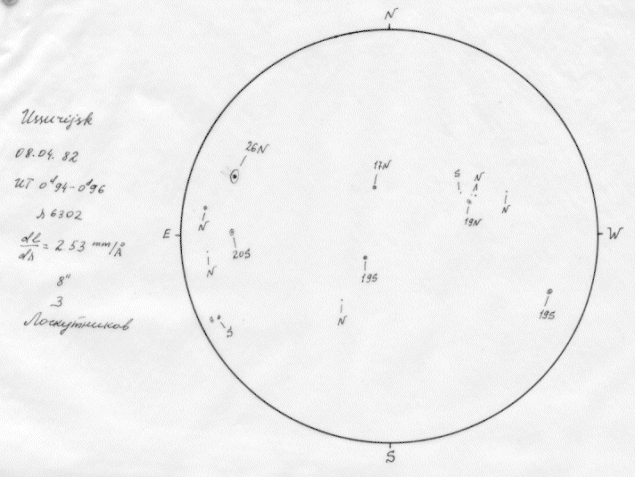 N
Ussurijsk
08.04.82
UT 0ᵈ94-0ᵈ96
λ 6302
dl/dλ = 2.53 mm/Å
8"
3
Лоскутников
26N
17N
S
N
19N
N
N
E
20S
N
W
19S
19S
N
S
S